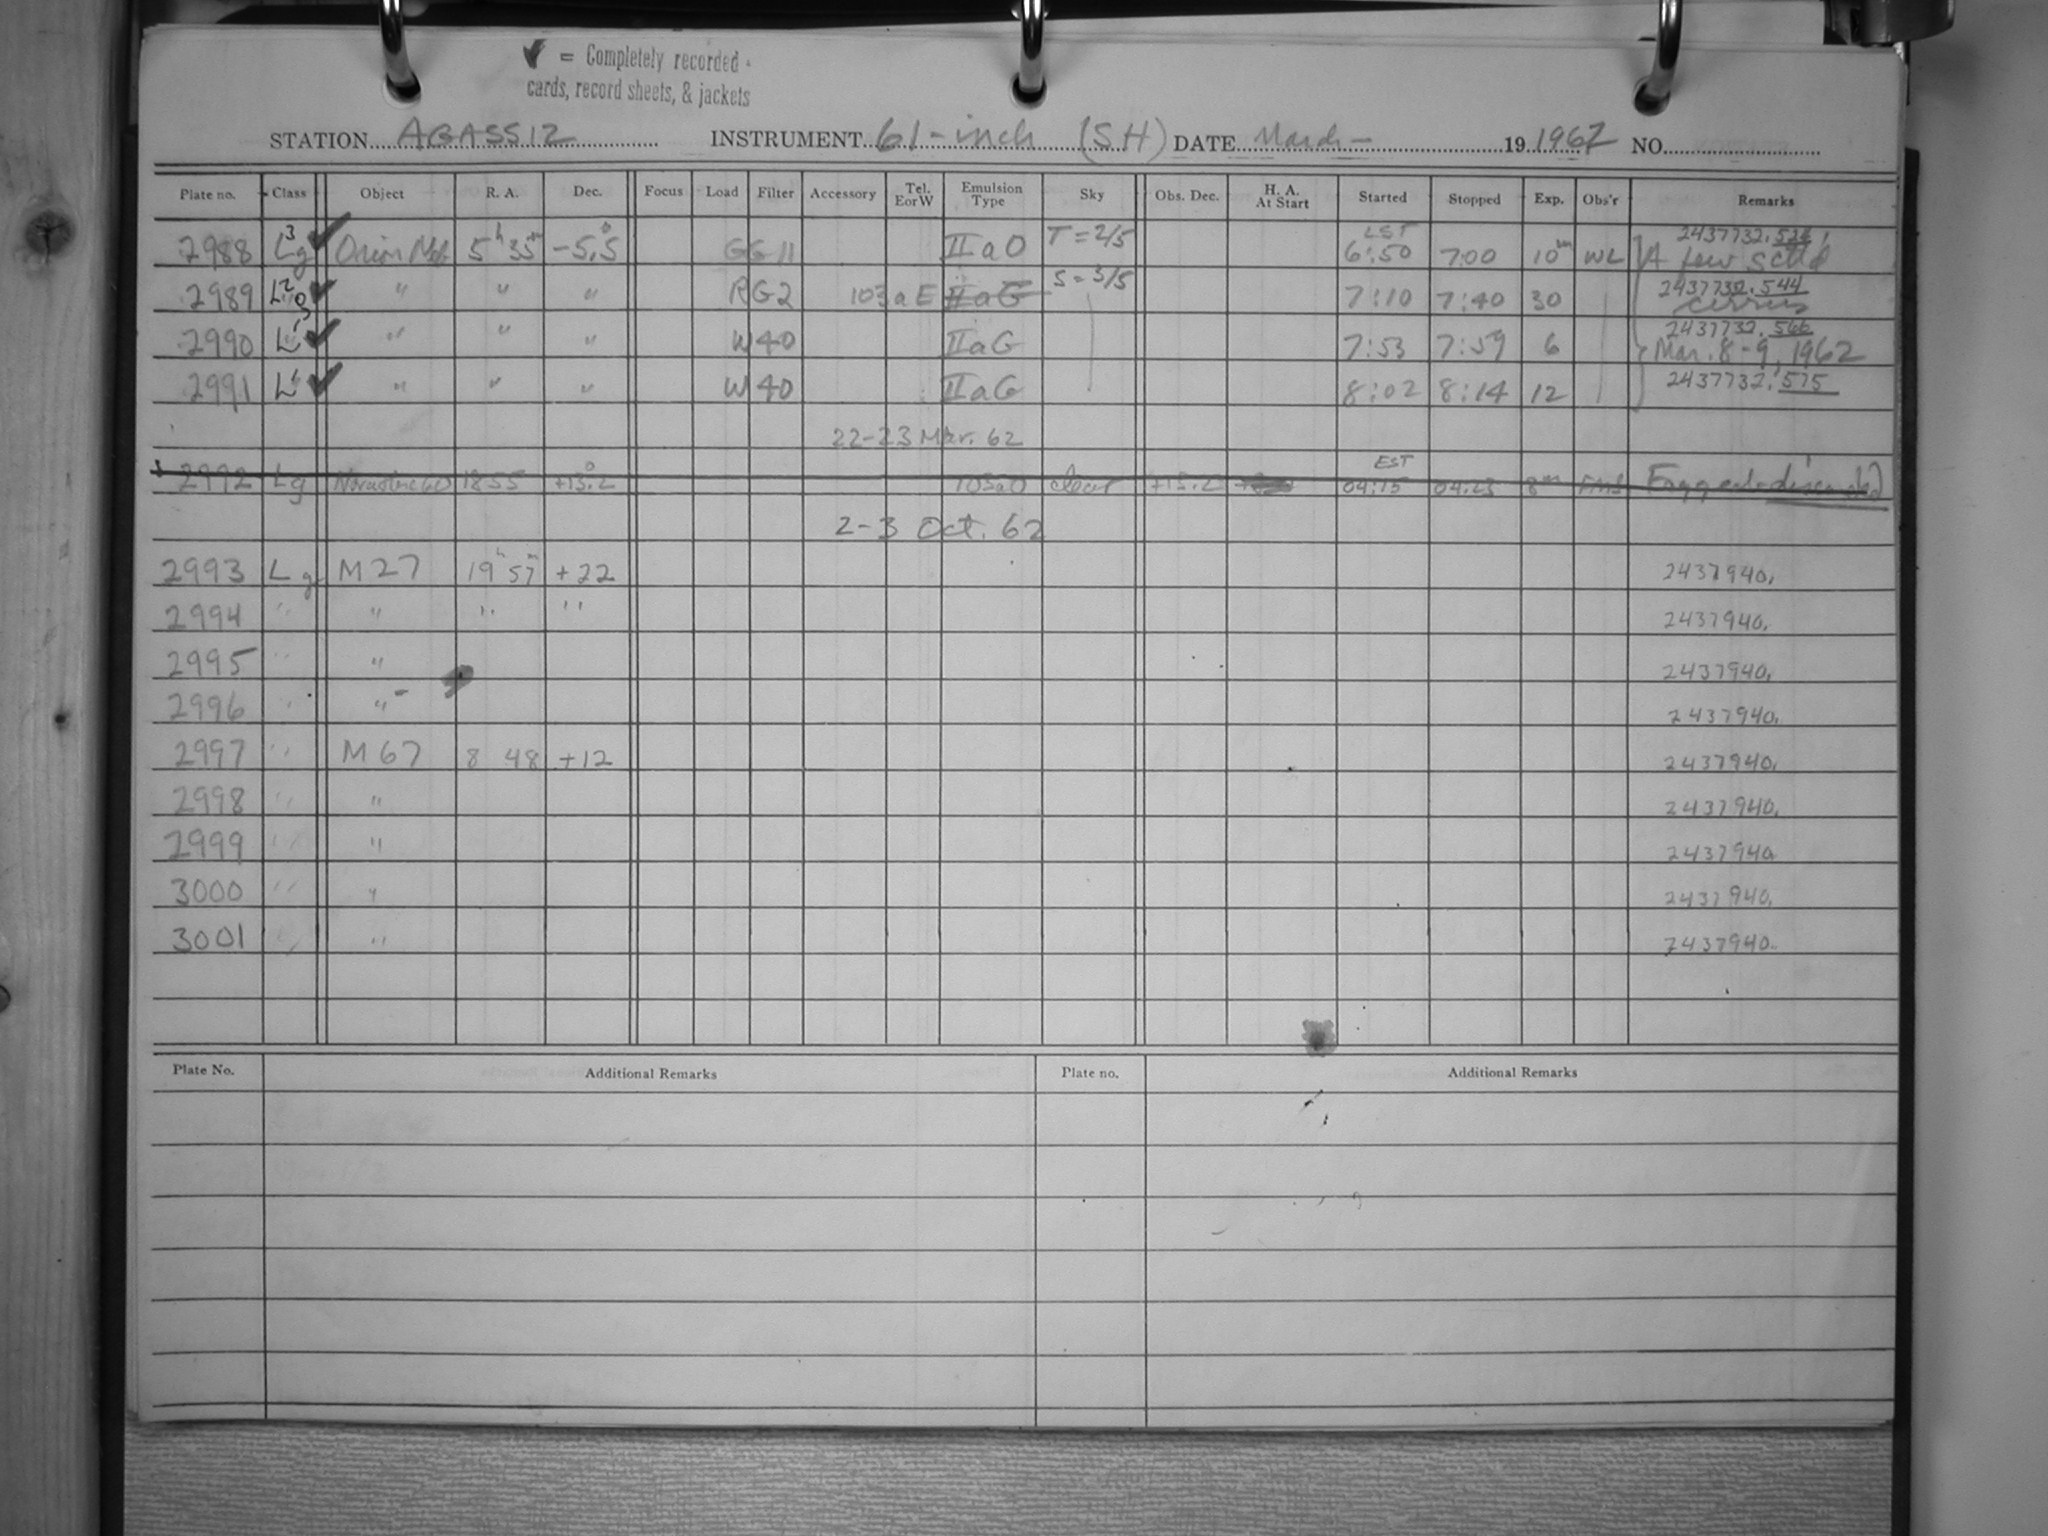 ✓ = Completely recorded -
cards, record sheets, & jackets
STATION AGASSIZ INSTRUMENT 61-inch (SH) DATE March - 19 1962 NO.
Plate no. Class Object R. A. Dec. Focus Load Filter Accessory Tel. E or W Emulsion Type Sky Obs. Dec. H. A. At Start Started Stopped Exp. Obs'r Remarks
2988 Lg 3 ✓ Orion Neb 5h 35m -5.°5 GG 11 II a O T = 2/5 LST 6:50 7:00 10m WL 2437732. A few sctt'd
2989 2 ✓ " " " RG2 103 a E II a G S = 3/5 7:10 7:40 30 2437732.544 cirrus
2990 ✓ " " " W 40 II a G 7:53 7:59 6 2437732.566 Mar. 8-9, 1962
2991 ✓ " " " W 40 II a G 8:02 8:14 12 2437732.575
22-23 Mar. 62
2992 Lg 18 55 +13.°2 103aO clear +13.2 EST 04:15 04:23 8m discarded
2-3 Oct. 62
2993 Lg M27 19h 57m +22 2437940.
2994 " " " " 2437940.
2995 " " 2437940.
2996 " " 2437940.
2997 " M 67 8 48 +12 2437940.
2998 " " 2437940.
2999 " " 2437940
3000 " " 2437940.
3001 " " 2437940.
Plate No. Additional Remarks Plate no. Additional Remarks